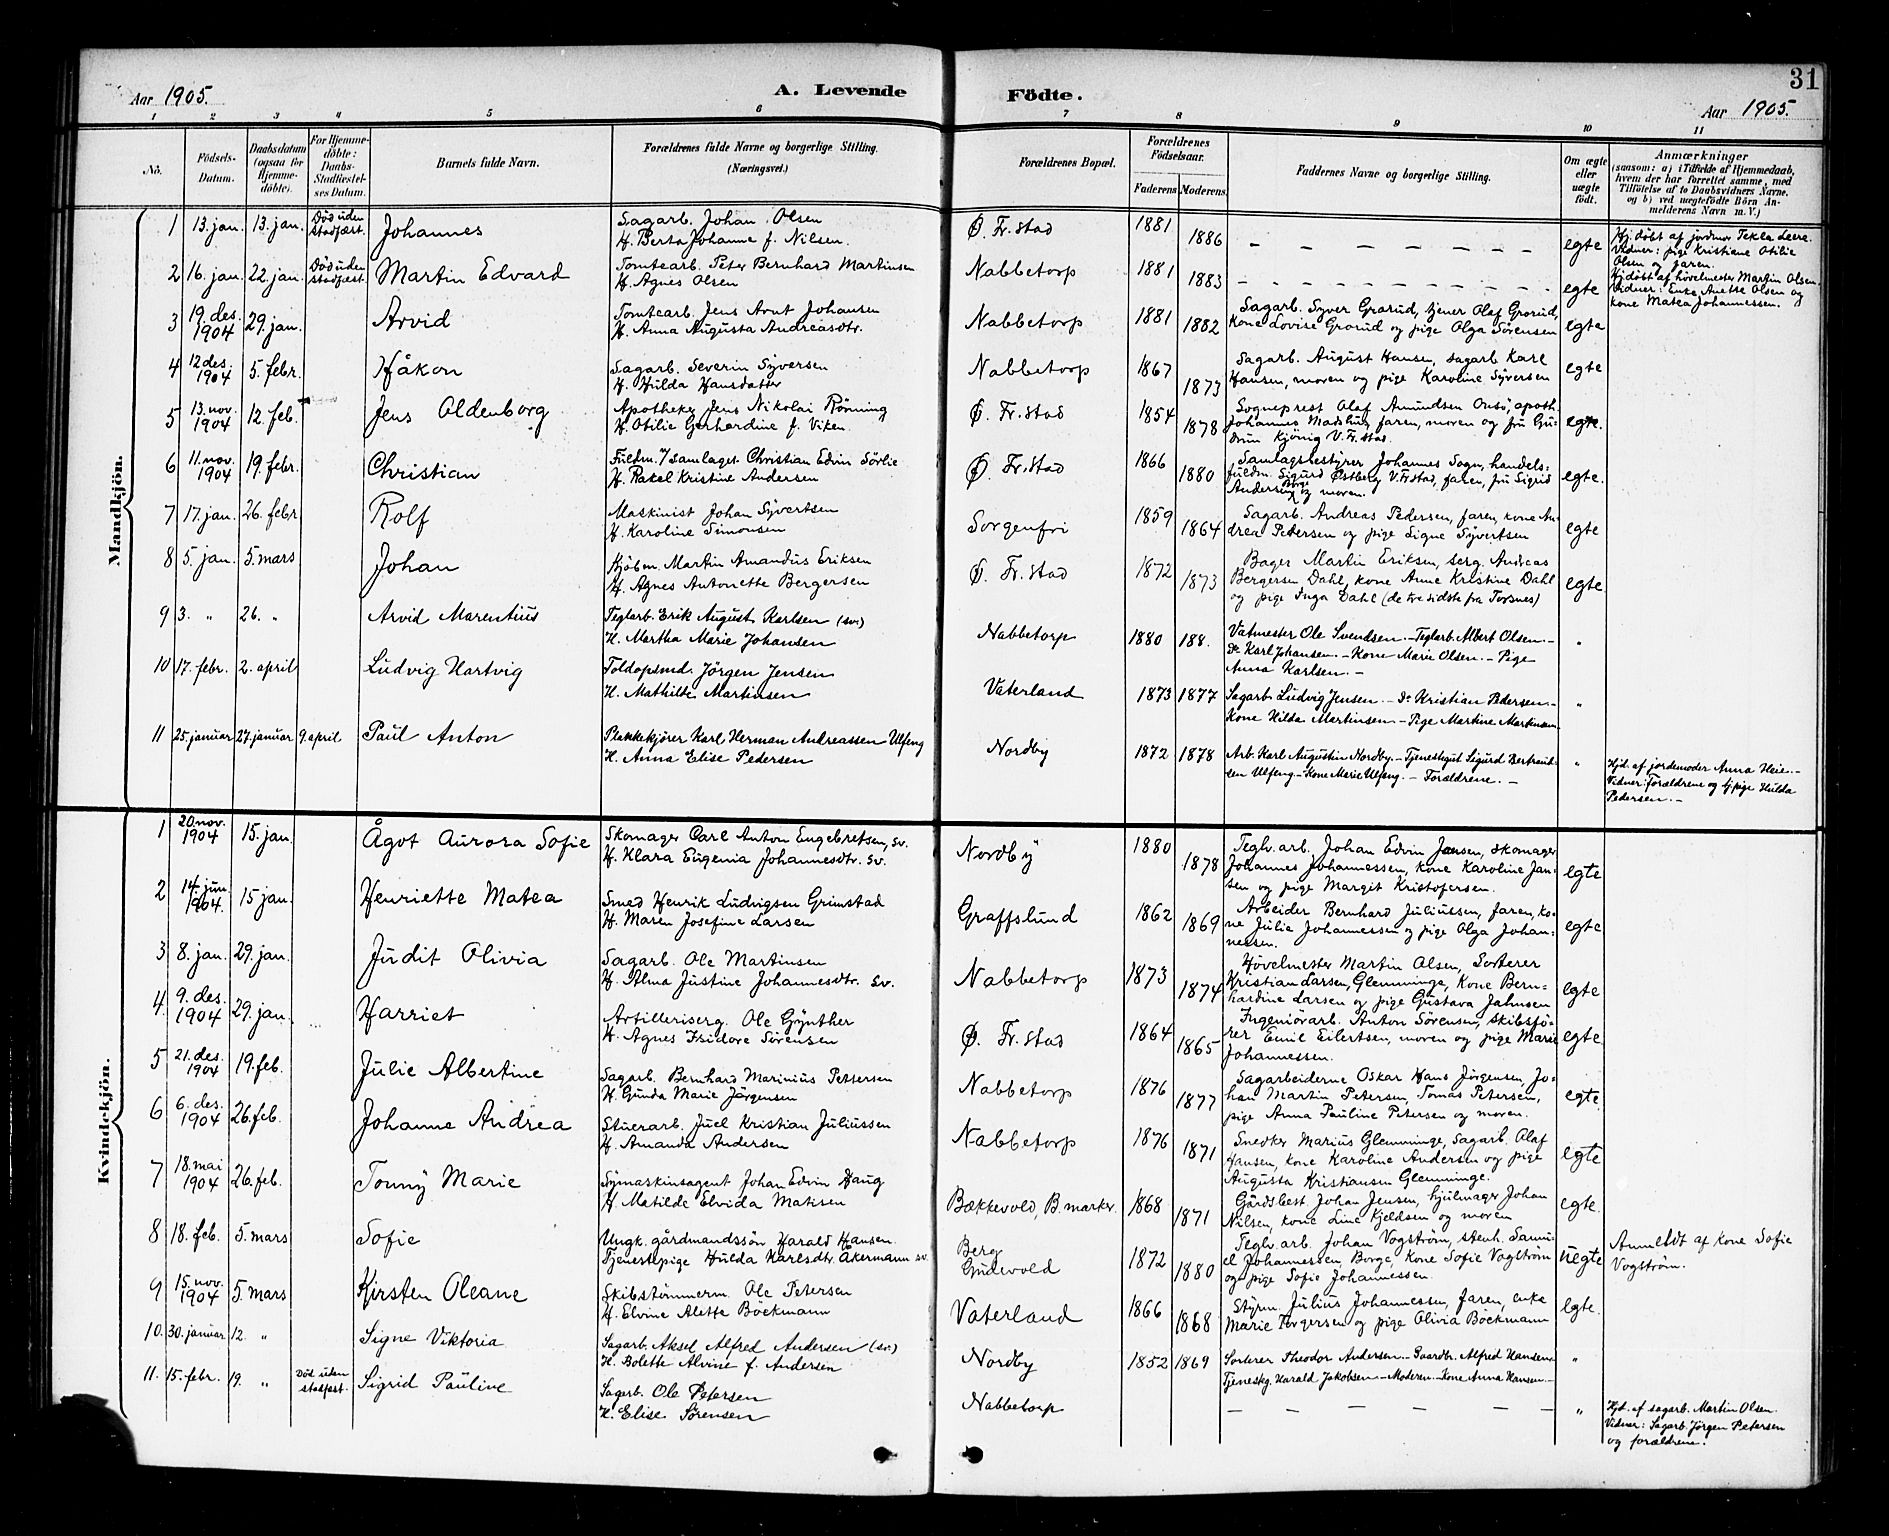 31
Aar 1905.
A. Levende
Födte.
Aar 1905.
1 2 3 4 5 6 7 8 9 10 11
No.
Födsels-Datum.
Daabsdatum (ogsaa for Hjemmedöbte).
For Hjemmedöbte: Daabs-Stadfæstelses Datum.
Barnets fulde Navn.
Forældrenes fulde Navne og borgerlige Stilling. (Næringsvei.)
Forældrenes Bopæl.
Forældrenes Födselsaar.
Faderens. Moderens.
Faddernes Navne og borgerlige Stilling.
Om ægte eller uægte födt.
Anmærkninger
(saasom: a) i Tilfælde af Hjemmedaab, hvem der har forrettet samme, med Tilföielse af to Daabsvidners Navne. og b) ved uægtefödte Börn Anmelderens Navn m. V.)
Mandkjön.
1 13. jan. 13. jan. Död uden stadfæst. Johannes
Sagarb. Johan Olsen
H. Berta Johanne f. Nilsen.
Ø. Fr.stad 1881 1886 egte
Hj. döbt af jordmor Tekla Leere. Vidner: pige Kristiane Otilie Olsen og faren.
2 16. jan. 22. jan. Död uden stadfæst. Martin Edvard
Tomtearb. Peter Bernhard Martinsen
H. Agnes Olsen
Nabbetorp 1881 1883 egte
Hj. döbt af hövelmester Martin Olsen. Vidner: Enke Anette Olsen og kone Matea Johannessen.
3 19. des. 1904 29. jan. Arvid
Tomtearb. Jens Arnt Johansen
H. Anna Augusta Andreasdtr.
Nabbetorp 1881 1882
Sagarb. Syver Grorud, tjener Olaf Grorud,
kone Lovise Grorud og pige Olga Sörensen egte
4 12 des. 1904 5. febr. Håkon
Sagarb. Severin Syversen
H. Hulda Hansdatter
Nabbetorp 1867 1873
Sagarb. August Hansen, sagarb. Karl
Hansen, moren og pige Karoline Syversen egte
5 13. nov. 1904 12. feb. Jens Oldenborg
Apotheker Jens Nikolai Rönning
H. Otilie Gerhardine f. Viken
Ø. Fr.stad 1854 1878
Sogneprest Olaf Amundsen Onsö, apoth.
Johannes, faren, moren og fru Gudrun Kjönig V. Fr.stad. egte.
6 11. nov. 1904 19. febr. Christian
Fuldm. i samlaget Christian Edvin Sörlie
H. Rakel Kristine Andersen
Ø. Fr.stad 1866 1880
Samlagsbestyrer Johannes Sogn, handels-
fuldm. Sigurd Østberg V. Fr.stad, faren, fru Sigrid
Andersen Borge og moren. egte.
7 17. jan. 26. febr Rolf
Maskinist Johan Syvertsen
H. Karoline Simonsen
Sorgenfri 1859 1864
Sagarb. Andreas Pedersen, faren, kone An-
drea Petersen og pige Signe Syvertsen egte
8 5. jan. 5. mars Johan
Kjöbm. Martin Amandus Eriksen
H. Agnes Antonette Bergersen
Ø. Fr.stad 1872 1873
Bager Martin Eriksen, serg. Andreas
Bergersen Dahl, kone Anne Kristine Dahl
og pige Inga Dahl (de tre sidste fra Torsnes) egte.
9 3. " 26. " Arvid Marentius
Teglarb. Erik August Karlsen (sv.)
H. Martha Marie Johansen
Nabbetorp 1880 188.
Vatmester Ole Svendsen. - Teglarb. Albert Olsen. -
Do Karl Johansen. - Kone Marie Olsen. - Pige
Anna Karlsen. - "
10 17. febr. 2. april Ludvig Hartvig
Toldopsmd. Jörgen Jensen
H. Mathilde Martinsen
Vaterland 1873 1877
Sagarb. Ludvig Jensen. - Do Kristian Pedersen -
Kone Hilda Martinsen - Pige Martine Martinsen "
11 25. januar 27. januar 9. april Paul Anton
Plankekjører Karl Herman Andreassen Ulfeng
H. Anna Elise Pedersen
Nordby 1872 1878
Arb. Karl Augustin Nordby. - Tjenestegut Sigurd Bertrand-
sen Ulfeng - Kone Marie Ulfeng. - Forældrene. - "
Hjd. af jordemoder Anna Heie. - Vidner: Forældrene og tj.pige Hulda Pedersen. -
Kvindekjön.
1 20. nov. 1904 15. jan. Ågot Aurora Sofie
Skomager Carl Anton Engebretsen, sv.
H. Klara Eugenia Johannesdtr. sv.
Nordby 1880 1878
Teglv. arb. Johan Edvin Jansen, skomager
Johannes Johannessen, kone Karoline Jan-
sen og pige Margit Kristofersen. egte
2 14. jun. 1904. 15 jan. Henriette Matea
Smed Henrik Ludvigsen Grimstad
H. Maren Josefine Larsen
Graffslund 1862 1869
Arbeider Bernhard Juliussen, faren, ko-
ne Julie Johannessen og pige Olga Johan-
nessen. egte
3 8. jan. 29. jan. Judit Olivia
Sagarb. Ole Martinsen
H. Alma Justine Johannesdtr. sv.
Nabbetorp 1873 1874
Hövelmester Martin Olsen, Sorterer
Kristian Larsen, Glemminge, Kone Bern-
hardine Larsen og pige Gustava Jahnsen egte
4 9. des. 1904 29. jan. Harriet
Artilleriserg. Ole Gynther
H. Agnes Isidore Sörensen
Ø. Fr.stad 1864 1865
Ingeniörarb. Anton Sörensen, skibsfö-
rer Emil Eilertsen, moren og pige Marie
Johannessen. egte.
5 21. des. 1904 19. feb. Julie Albertine
Sagarb. Bernhard Marinius Pettersen
H. Gunda Marie Jörgensen
Nabbetorp 1876 1877
Sagarbeiderne Oskar Hans Jörgensen, Jo-
han Martin Petersen, Tomas Petersen,
pige Anna Pauline Petersen og moren. egte
6 6. des. 1904 26. feb. Johanne Andrea
Stuerarb. Juel Kristian Juliussen
H. Amanda Andersen
Nabbetorp 1876 1871
Snedker Marius Glemminge, Sagarb. Olaf
Hansen, kone Karoline Andersen og pige
Augusta Kristiansen Glemminge. egte
7 18. mai 1904 26. feb. Tonny Marie
Symaskinsagent Johan Edvin Haug
H. Matilde Elvida Matisen
Bækkevold, B. marker 1868 1871
Gårdsbest. Johan Jensen, hjulmager Johan
Nilsen, kone Line Kjeldsen og moren egte.
8 18. feb. 5. mars Sofie
Ungk. gårdmandssön Harald Hansen
Tjenestepige Hulda Karlsdtr. Åkermann sv.
Berg
Gudevold 1872 1880
Teglv. arb. Johan Vogström, stenh. Samu-
el Johannessen, Borge, kone Sofie Vogström
og pige Sofie Johannessen. uegte
Anmeldt af kone Sofie Vogström.
9 15. nov. 1904 5. mars Kirsten Oleane
Skibstömmerm. Ole Petersen
H. Elvine Alette Böckmann
Vaterland 1866 1868
Styrm. Julius Johannessen, faren, enke
Marie Torgersen og pige Olivia Böckmann egte.
10. 30. januar 12. " Signe Viktoria
Sagarb. Aksel Alfred Andersen (sv.)
H. Bolette Alvine f. Andersen
Nordby 1852 1869
Sorterer Theodor Andersen. - Gaardbr. Alfred Hansen
Tjenesteg. Harald Jakobsen - Moderen - Kone Anna Hansen - "
11. 15. febr. 19. " Död uden stadfæst. Sigrid Pauline
Sagarb. Ole Petersen
H. Elise Sörensen
Nabbetorp "
Hjd. af sagarb. Martin Olsen. Vidner: Sagarb. Jörgen Petersen og forældrene.